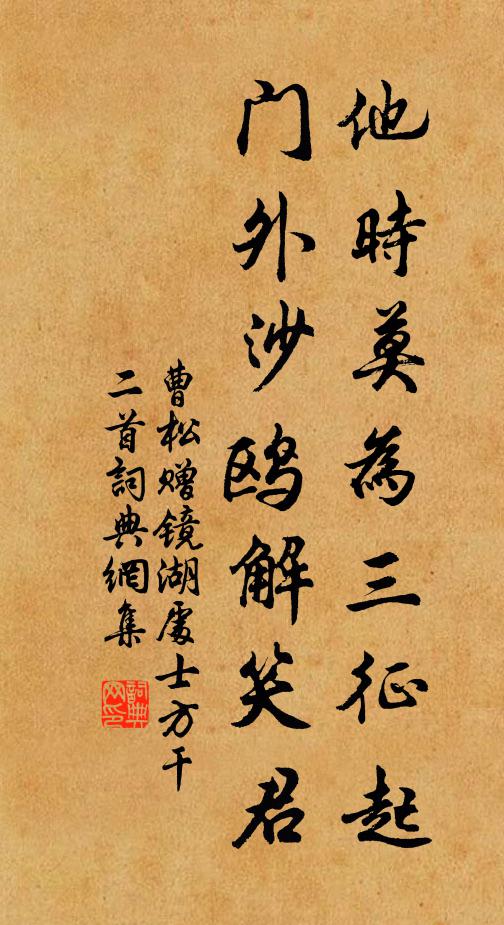 他時莫為三征起
门外沙鸥解笑君
曹松赠镜湖處士方干
二首詞典網集
詞典
网印